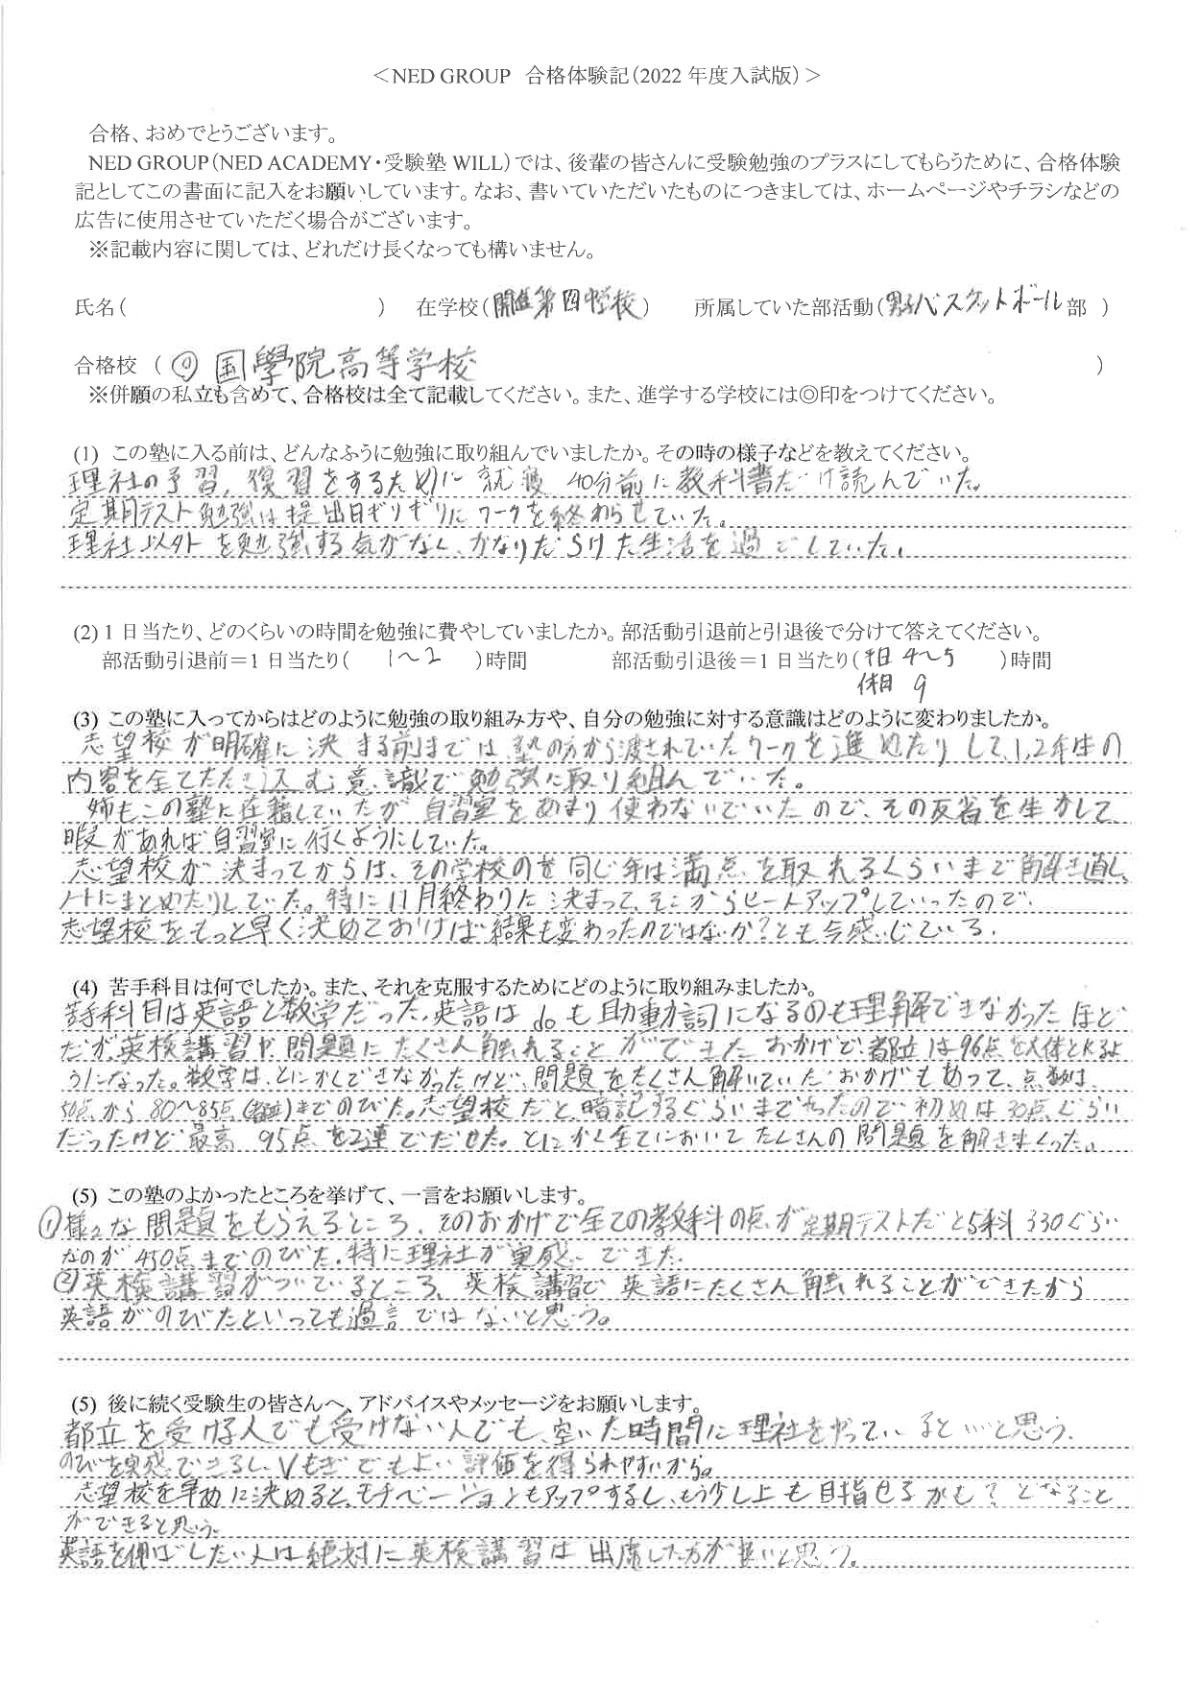 ＜NED GROUP 合格体験記（2022 年度入試版）＞
合格、おめでとうございます。
NED GROUP（NED ACADEMY・受験塾 WILL）では、後輩の皆さんに受験勉強のプラスにしてもらうために、合格体験
記としてこの書面に記入をお願いしています。なお、書いていただいたものにつきましては、ホームページやチラシなどの
広告に使用させていただく場合がございます。
※記載内容に関しては、どれだけ長くなっても構いません。
氏名（ ） 在学校（開進第四中学校） 所属していた部活動（男子バスケットボール部 ）
合格校 （◎ 国學院高等学校 ）
※併願の私立も含めて、合格校は全て記載してください。また、進学する学校には◎印をつけてください。
(1) この塾に入る前は、どんなふうに勉強に取り組んでいましたか。その時の様子などを教えてください。
理社の予習、復習をするために就寝40分前に教科書だけ読んでいた。
定期テスト勉強は提出日ギリギリにワークを終わらせていた。
理社以外を勉強する気がなく、かなりだらけた生活を過ごしていた。
(2) 1 日当たり、どのくらいの時間を勉強に費やしていましたか。部活動引退前と引退後で分けて答えてください。
部活動引退前＝1 日当たり（ 1〜2 ）時間 部活動引退後＝1 日当たり（平日 4〜5 ）時間
休日 9
(3) この塾に入ってからはどのように勉強の取り組み方や、自分の勉強に対する意識はどのように変わりましたか。
志望校が明確に決まる前までは塾の方から渡されていたワークを進めたりして、1,2年生の
内容を全てたたき込む意識で勉強に取り組んでいた。
姉もこの塾に在籍していたが自習室をあまり使わないでいたので、その反省を生かして
暇があれば自習室に行くようにしていた。
志望校が決まってからは、その学校の 同じ年は満点を取れるくらいまで解き直し、
ノートにまとめたりしていた。特に11月終わりに決まって、そこからヒートアップしていったので、
志望校をもっと早く決めておけば結果も変わったのではないか？とも今感じている.
(4) 苦手科目は何でしたか。また、それを克服するためにどのように取り組みましたか。
苦手科目は英語と数学だった。英語はdoも助動詞になるのも理解できなかったほど
だが、英検講習や問題にたくさん触れることができたおかげで、都立は96点を大体とれるよ
うになった。数学は、とにかくできなかったけど、問題をたくさん解いていたおかげもあって、点数は
50点から80〜85点(都立)までのびた。志望校だと、暗記するぐらいまでやったので初めは30点ぐらい
だったけど最高95点を2連でだせた。とにかく全てにおいてたくさんの問題を解きまくった。
(5) この塾のよかったところを挙げて、一言をお願いします。
①様々な問題をもらえるところ。そのおかげで全ての教科の点が定期テストだと5科330ぐらい
なのが450点までのびた。特に理社が実感できた.
②英検講習がついているところ、英検講習で英語にたくさん触れることができたから
英語がのびたといっても過言ではないと思う。
(5) 後に続く受験生の皆さんへ、アドバイスやメッセージをお願いします。
都立を受ける人でも受けない人でも、空いた時間に理社をやっているといいと思う.
のびを実感できるし、Vもぎでもよい評価を得られやすいから。
志望校を早めに決めると、モチベーションもアップするし、もう少し上も目指せるかも？となること
ができると思う。
英語を伸ばしたい人は絶対に英検講習は出席した方が良いと思う。